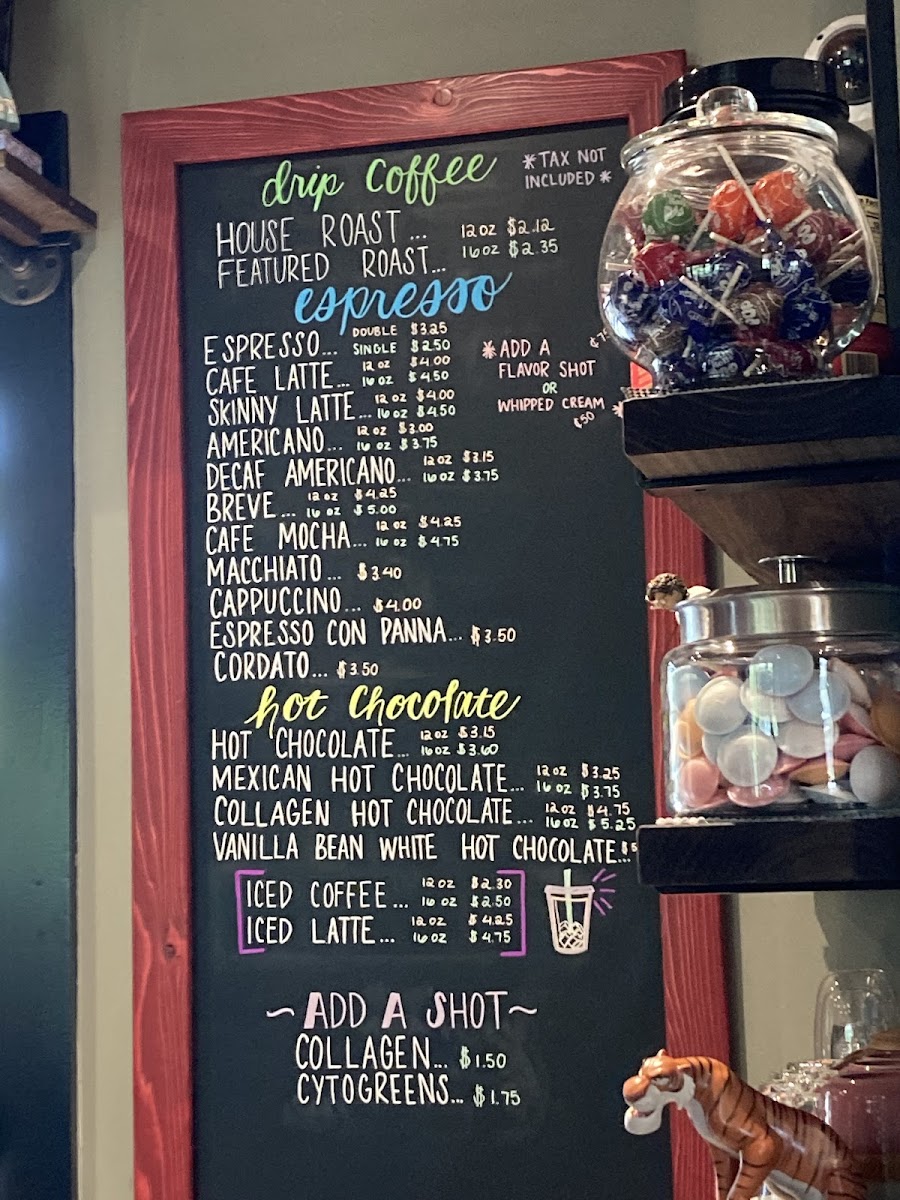 drip coffee
*TAX NOT
INCLUDED*
HOUSE ROAST... 12 oz $2.12
FEATURED ROAST... 16 oz $2.35
espresso
ESPRESSO... DOUBLE $3.25
SINGLE $2.50
CAFE LATTE... 12 oz $4.00
16 oz $4.50
SKINNY LATTE... 12 oz $4.00
16 oz $4.50
AMERICANO... 12 oz $3.00
16 oz $3.75
DECAF AMERICANO... 12 oz $3.15
16 oz $3.75
BREVE... 12 oz $4.25
16 oz $5.00
CAFE MOCHA... 12 oz $4.25
16 oz $4.75
MACCHIATO... $3.40
CAPPUCCINO... $4.00
ESPRESSO CON PANNA... $3.50
CORDATO... $3.50
*ADD A
FLAVOR SHOT
OR
WHIPPED CREAM *
¢50
hot chocolate
HOT CHOCOLATE... 12 oz $3.15
16 oz $3.60
MEXICAN HOT CHOCOLATE... 12 oz $3.25
16 oz $3.75
COLLAGEN HOT CHOCOLATE... 12 oz $4.75
16 oz $5.25
VANILLA BEAN WHITE HOT CHOCOLATE...
ICED COFFEE... 12 oz $2.30
16 oz $2.50
ICED LATTE... 12 oz $4.25
16 oz $4.75
~ADD A SHOT~
COLLAGEN... $1.50
CYTOGREENS... $1.75